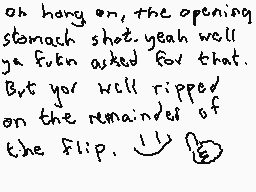 oh hang on, the opening
stomach shot. yeah well
ya fukn asked for that.
But yor well ripped
on the remainder of
the flip.